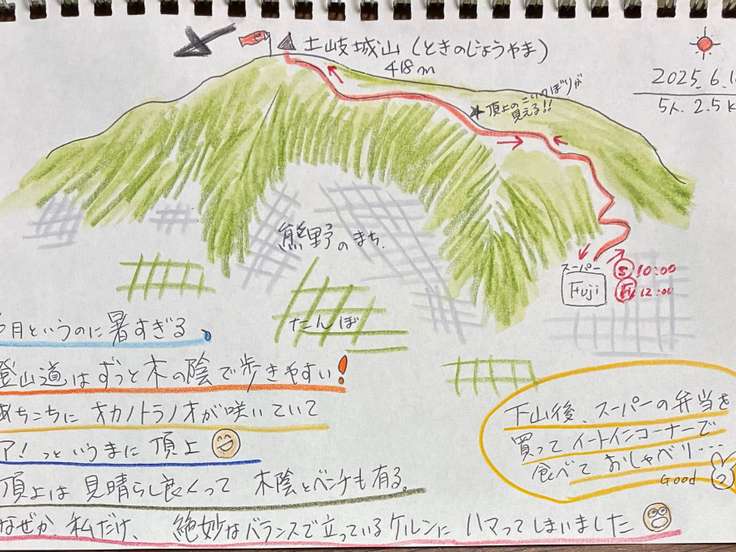 土岐城山(ときのじょうやま)
418m
2025.6.1
5人 2.5k
頂上のこいのぼりが
見える!!
熊野のまち
スーパー
Fuji
S 10:00
F 12:00
たんぼ
6月というのに暑すぎる、
登山道はずっと木の陰で歩きやすい!
あちこちにオカノトラノオが咲いていて
ア!っというまに頂上
頂上は見晴らし良くって 木陰とベンチも有る。
なぜか 私だけ、絶妙なバランスで立っているケルンにハマってしまいました
下山後、スーパーの弁当を
買ってイートインコーナーで
食べて おしゃべり…
Good